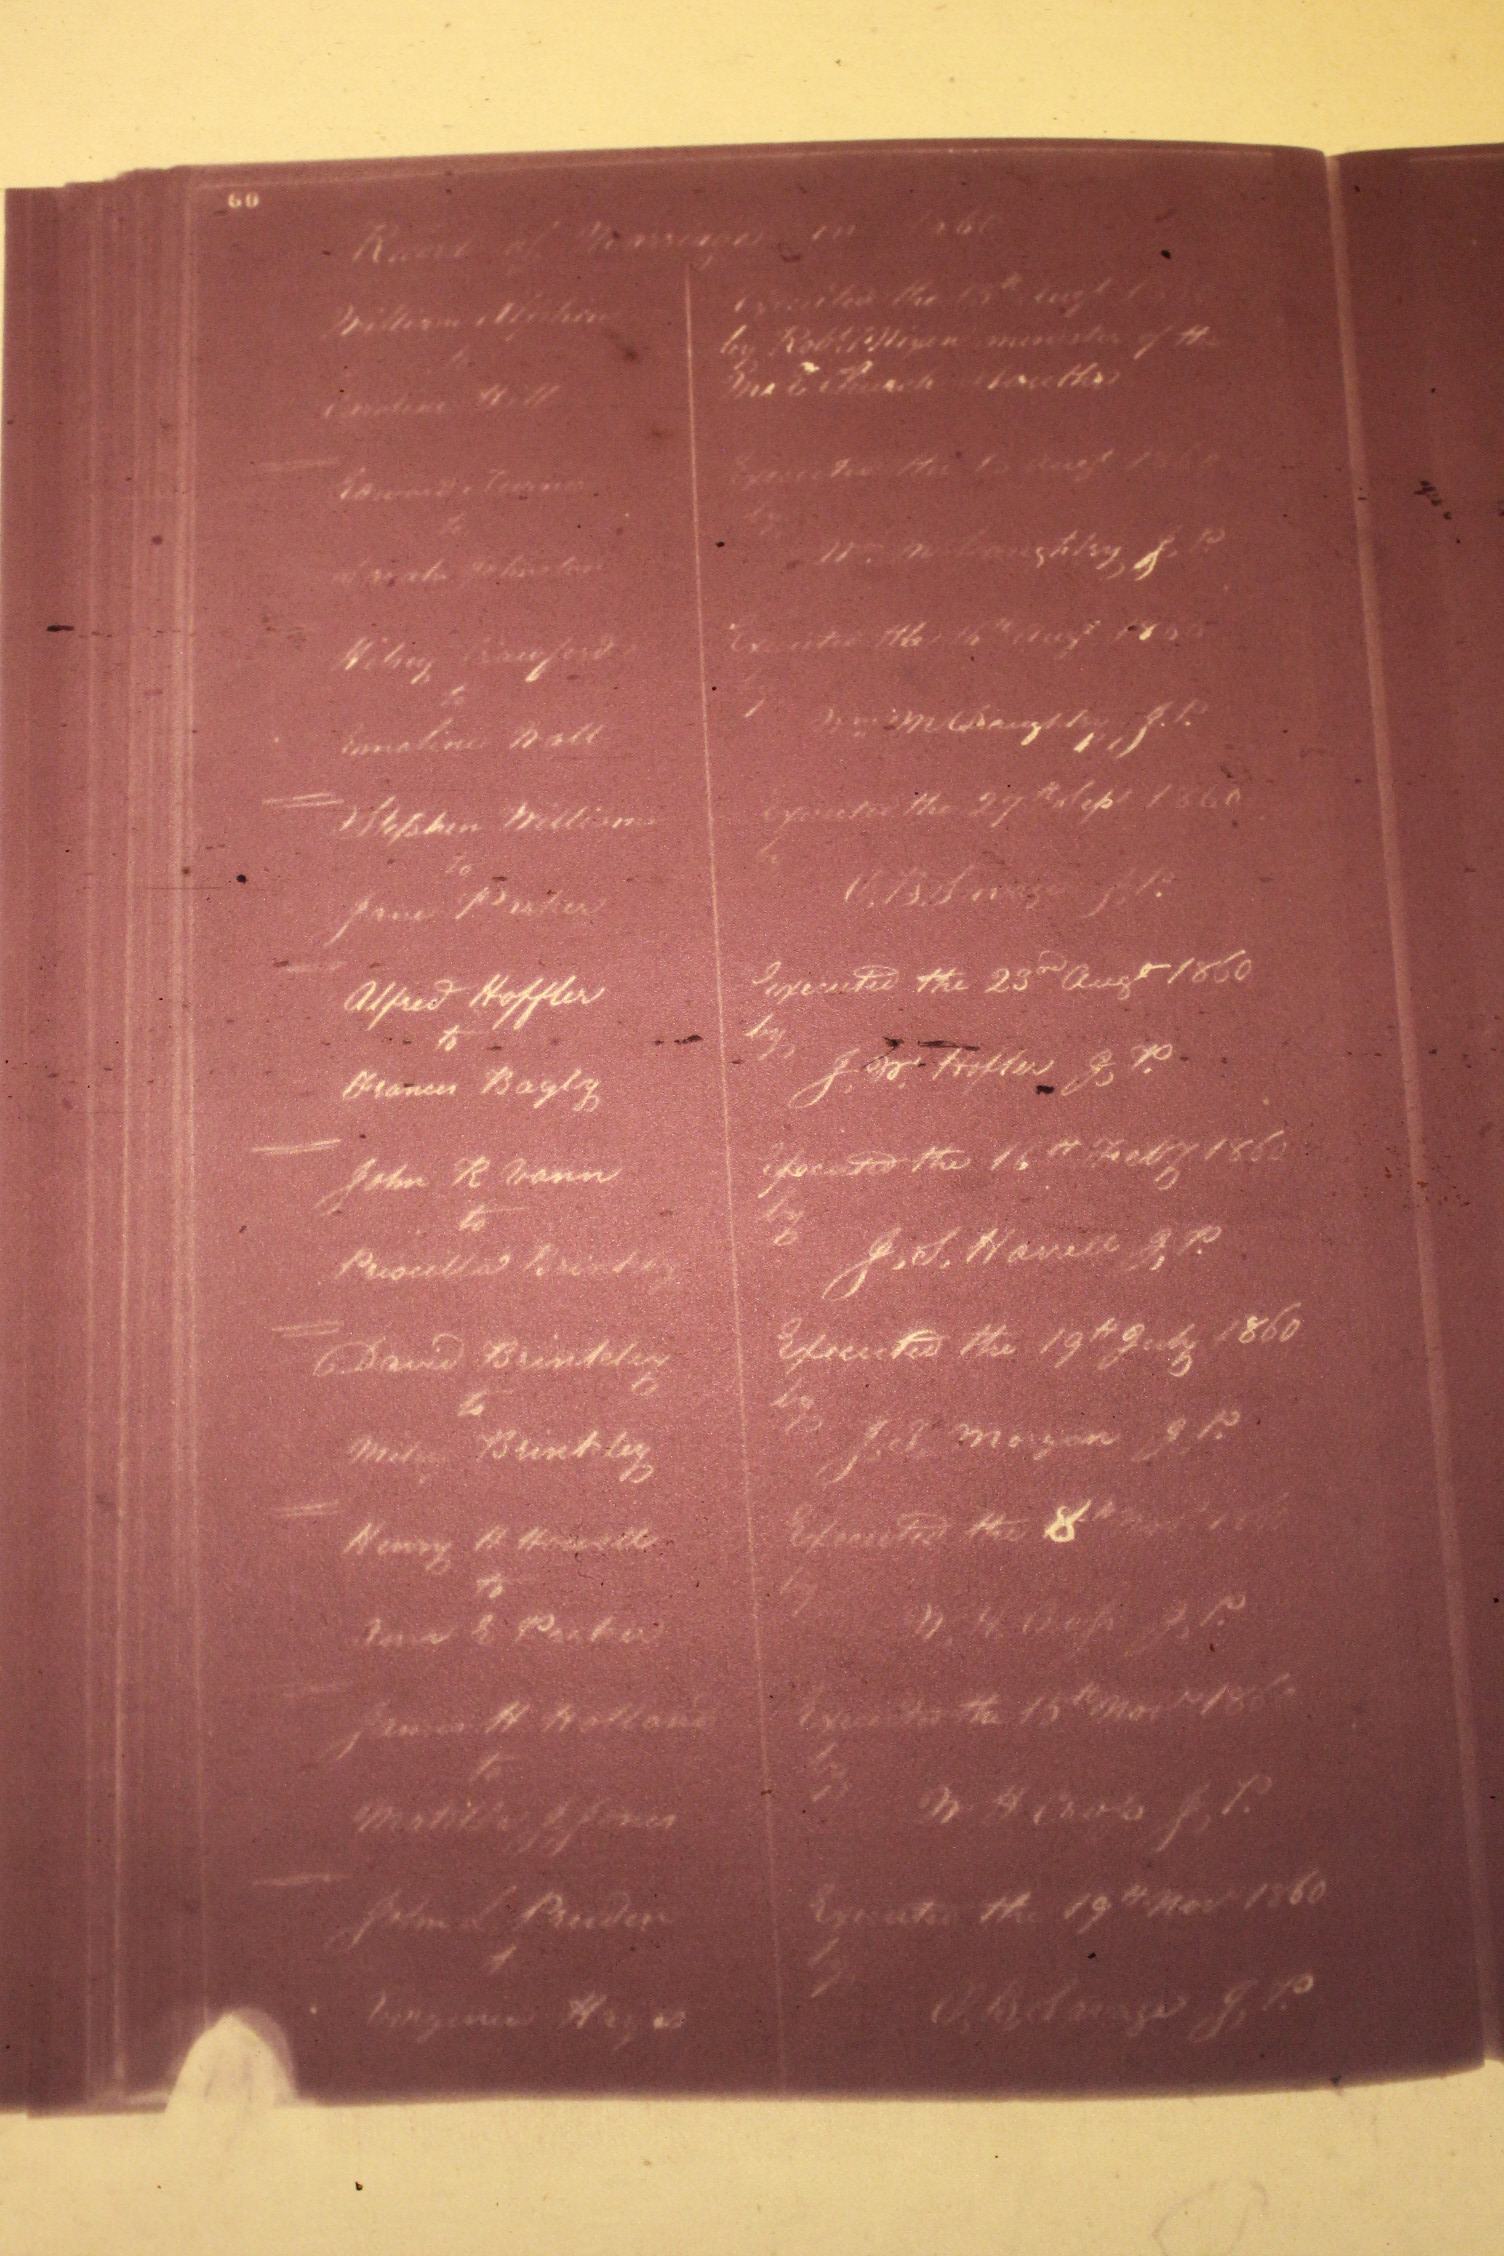 60
Record of Marriages in 1860
William
to
Caroline Hill
Executed the 15th Augt
by Robt P Nixon minister of the
M E Church South
Edward Turner
to
Sarah Johnston
Executed the 15 Augt 1860
by
Wm McCaughley J, P.
Crawford
to
Emaline Ball
Executed the 16th Augt 1860
by
Wm McCaughley, J. P.
Stephen Williams
to
Jane Parker
Executed the 27th Sept 1860
O. B. Savage J. P.
Alfred Hoffler
to
Frances Bagly
Executed the 23rd Augt 1860
by
J. W. Hofler J, P.
John R Vann
to
Priscilla Brinkley
Executed the 16th Feby 1860
by
J. S. Harrell J, P.
David Brinkley
to
Miley Brinkley
Executed the 19th July 1860
by
Morgan J, P.
Henry H Howell
to
E Parker
Executed the 8th Nov 1860
by
W. H. Cross J, P.
James H Holland
to
Matilda Jones
Executed the 15th Nov 1860
by
W H Cross J, P.
John L Pruden
to
Hays
Executed the 19th Nov 1860
by
O, B, Savage J, P.